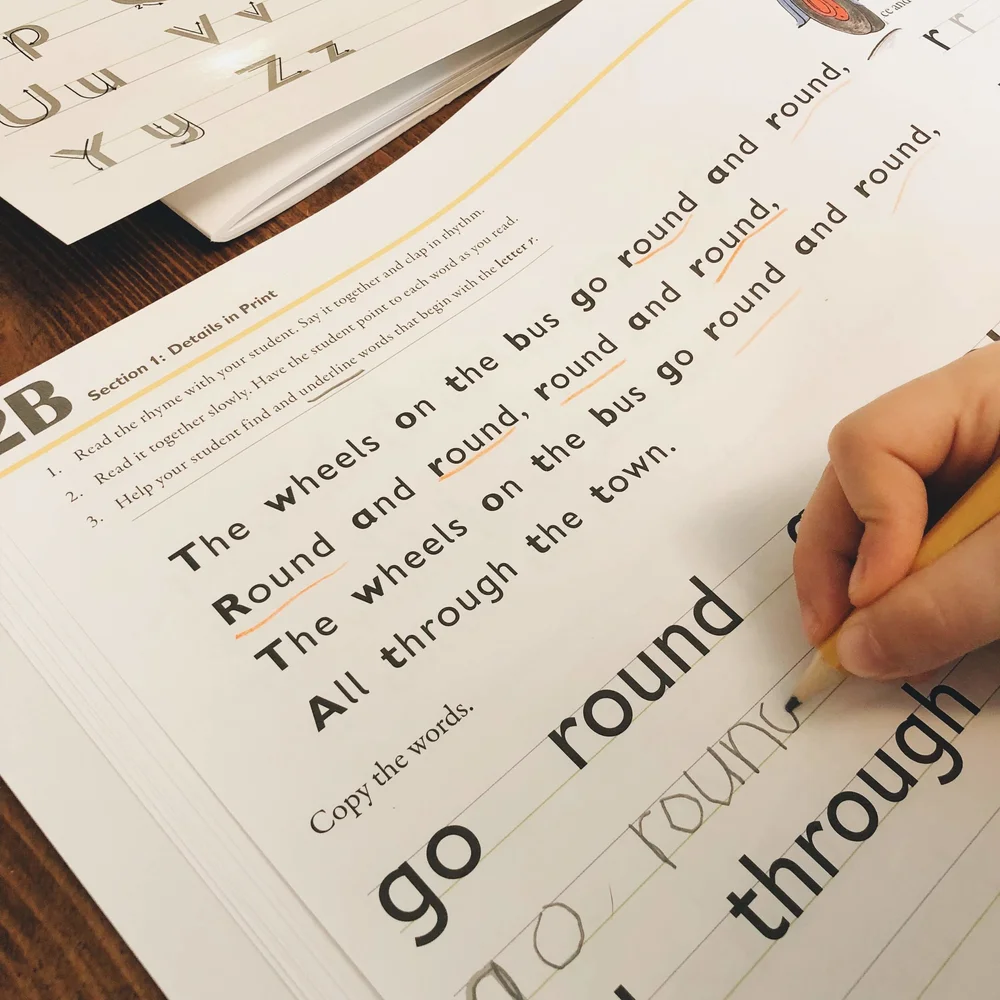 p V v
U u Z z
Y y
r r
2B Section 1: Details in Print
1. Read the rhyme with your student. Say it together and clap in rhythm.
2. Read it together slowly. Have the student point to each word as you read.
3. Help your student find and underline words that begin with the letter r.
The wheels on the bus go round and round,
Round and round, round and round,
The wheels on the bus go round and round,
All through the town.
Copy the words.
go round
go roun
through